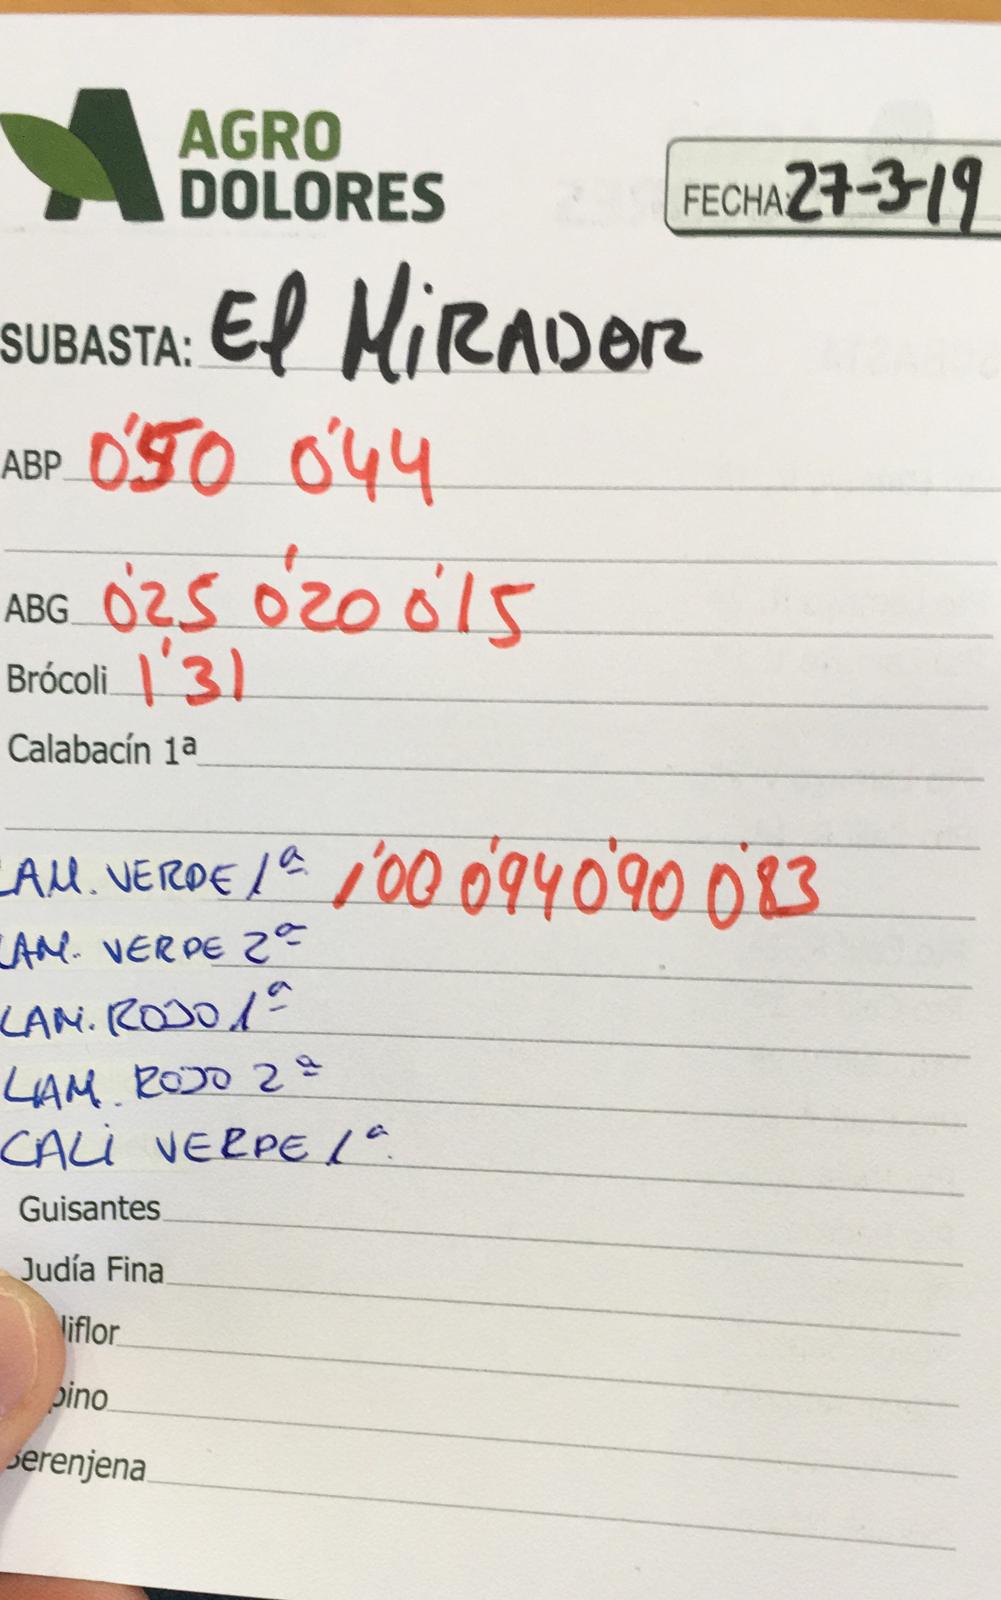 AGRO
DOLORES
FECHA: 27-3-19
SUBASTA: El MiRADOR
ABP 0'50 0'44
ABG 0'25 0'20 0'15
Brócoli 1'31
Calabacín 1ª
LAM. VERDE 1ª 1'00 0'94 0'90 0'83
LAM. VERDE 2ª
LAM. ROJO 1ª
LAM. ROJO 2ª
CALI VERDE 1ª
Guisantes
Judía Fina
liflor
pino
Berenjena